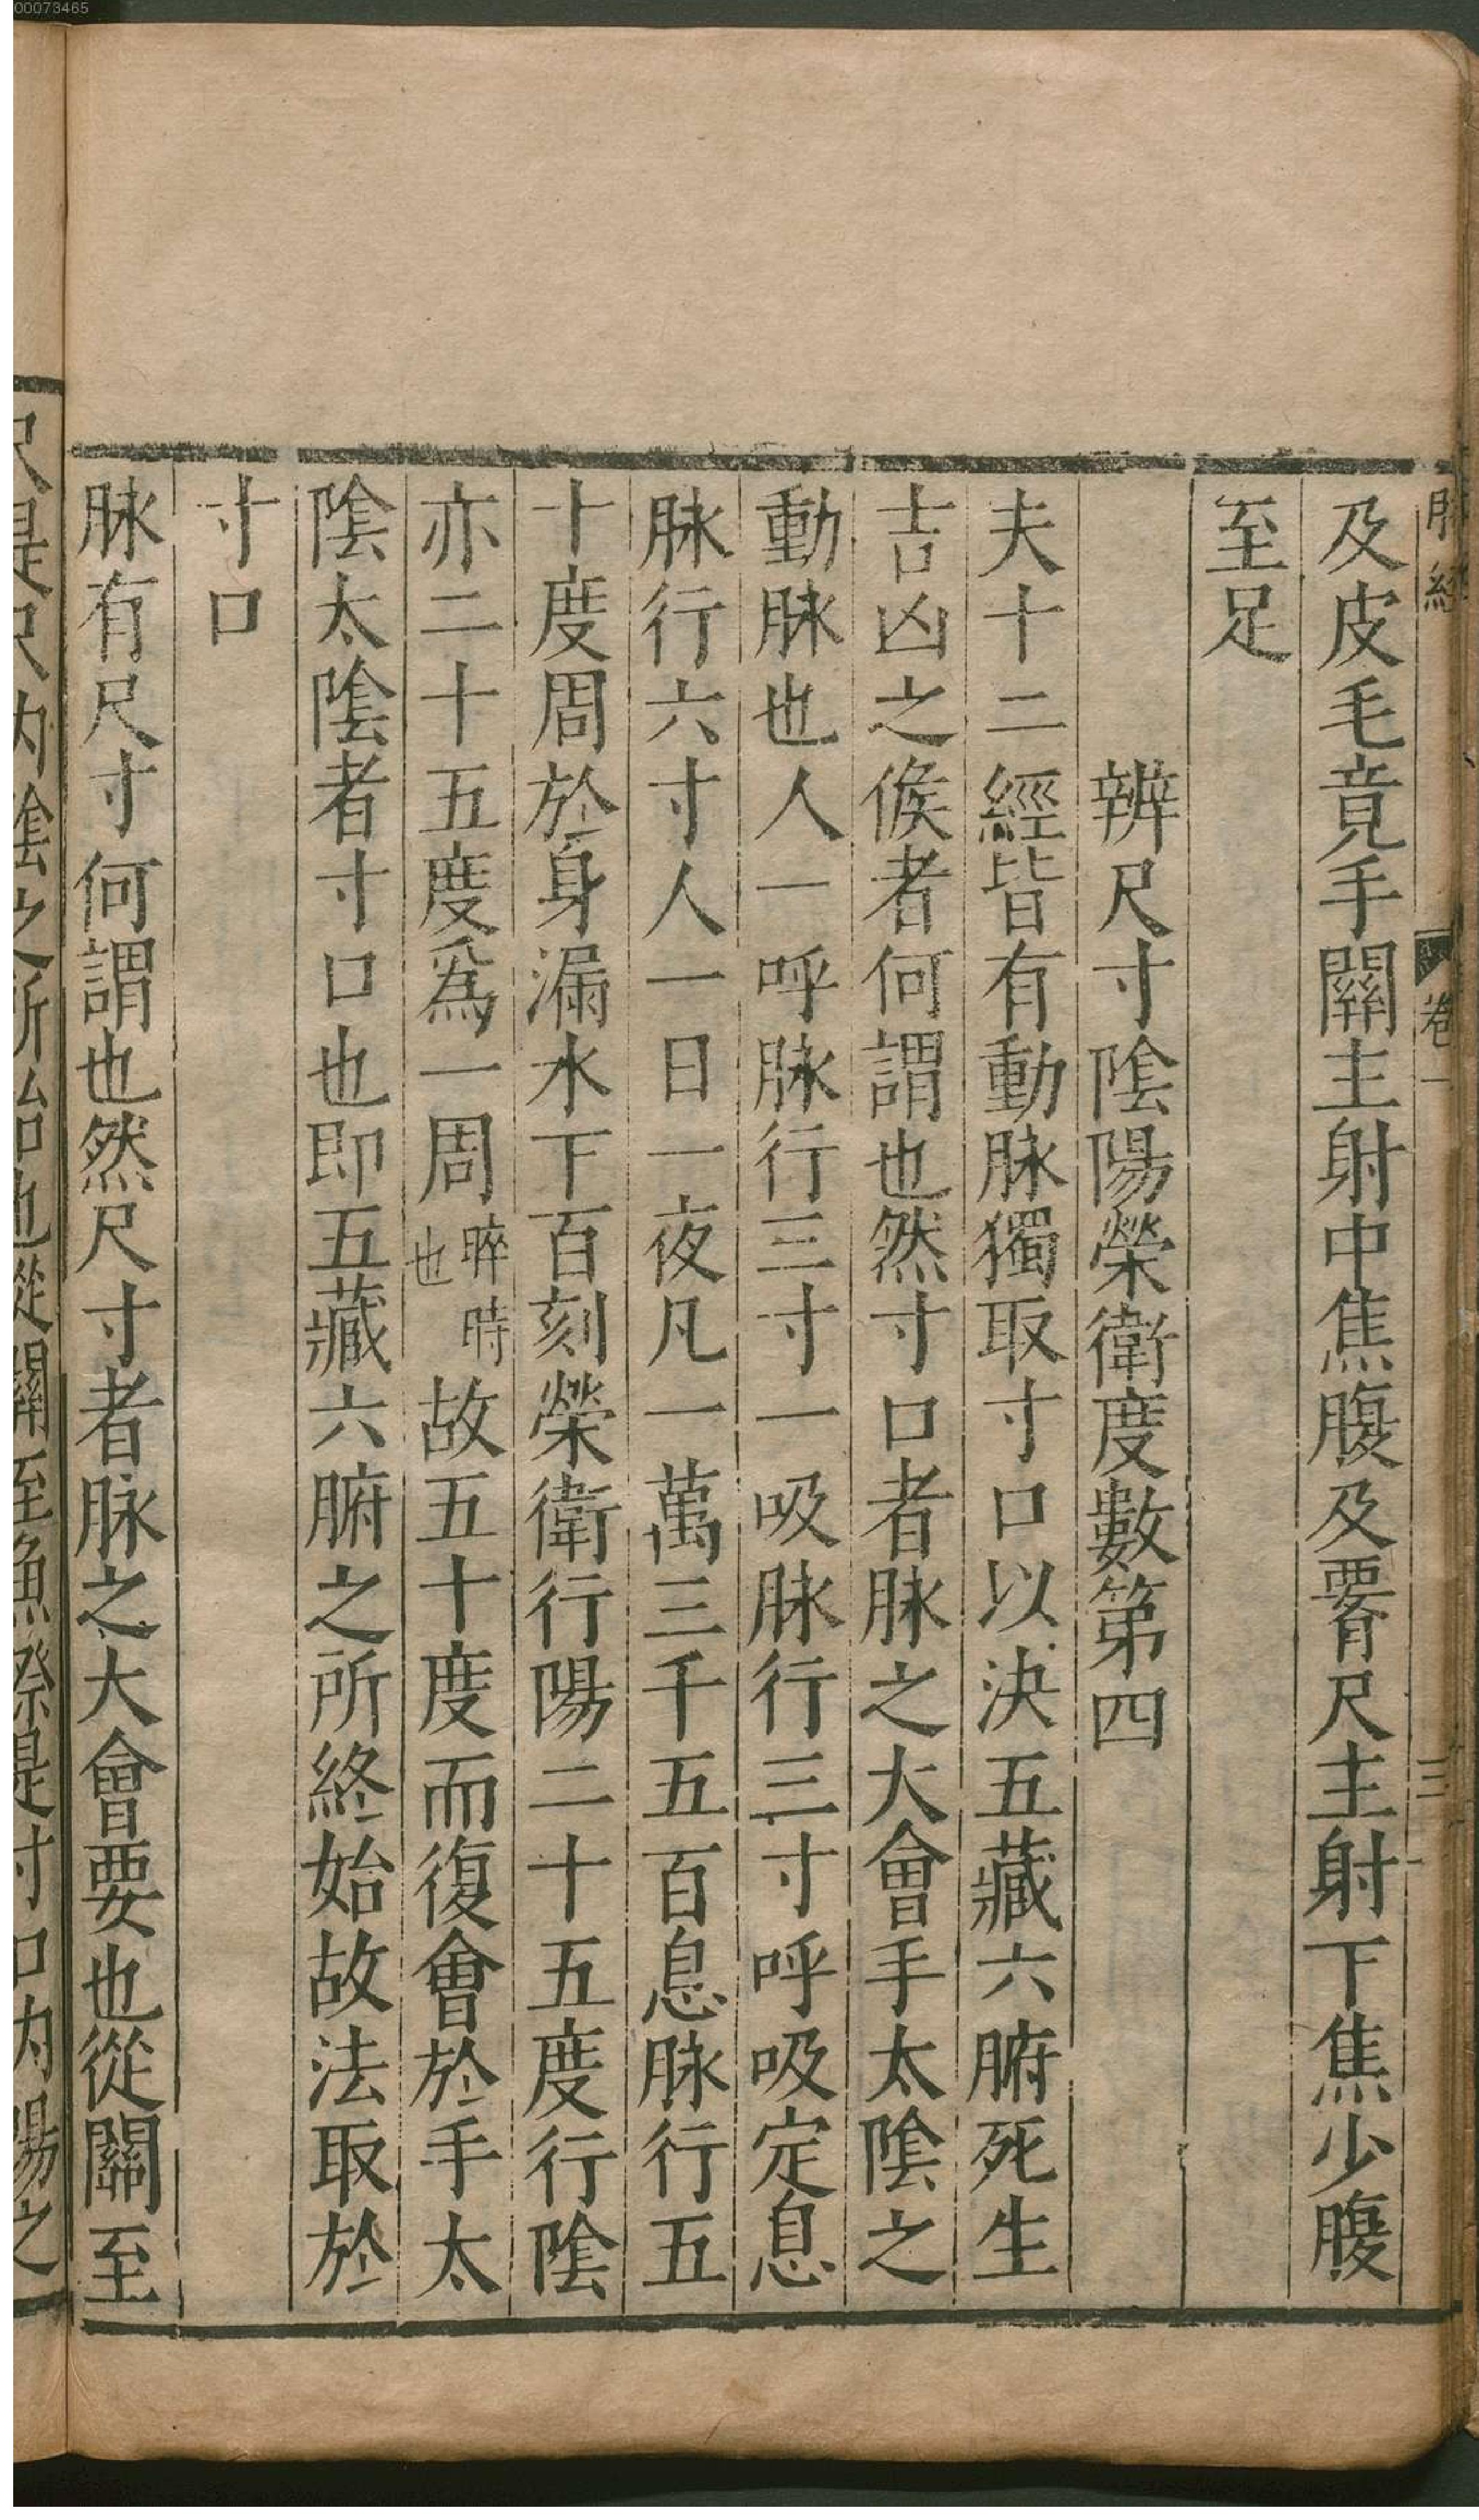 00073465
脉經
卷一
三
及皮毛竟手關主射中焦腹及𦝫尺主射下焦少腹
至足
辨尺寸陰陽榮衛度數第四
夫十二經皆有動脉獨取寸口以決五藏六腑死生
吉凶之候者何謂也然寸口者脉之大會手太陰之
動脉也人一呼脉行三寸一吸脉行三寸呼吸定息
脉行六寸人一日一夜凡一萬三千五百息脉行五
十度周於身漏水下百刻榮衛行陽二十五度行陰
亦二十五度爲一周晬時也故五十度而復會於手太
陰太陰者寸口也即五藏六腑之所終始故法取於
寸口
脉有尺寸何謂也然尺寸者脉之大會要也從關至
尺是尺內陰之所治也從關至魚際是寸口內陽之